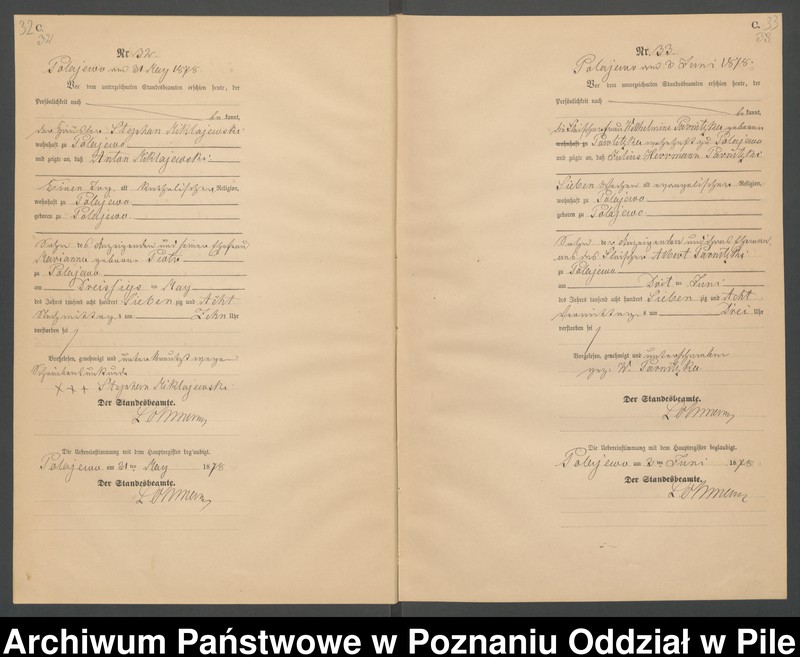 32 C.
32
Nr. 32
Polajewo am 31 May 1878
Vor dem unterzeichneten Standesbeamten erschien heute, der
Persönlichkeit nach
be kannt,
der Häusler Stephan Miklajewski
wohnhaft zu Polajewo
und zeigte an, daß Anton Miklajewski
Einen Tag alt Katholischer Religion,
wohnhaft zu Polajewo
geboren zu Polajewo
Sohn des Anzeigenden und seiner Ehefrau
Marianna geborene
zu Polajewo
am Dreißigs ten May
des Jahres tausend acht hundert Sieben zig und Acht
Nachmittag s um Zehn Uhr
verstorben sei
Vorgelesen, genehmigt und wegen
+++ Stephan Miklajewski
Der Standesbeamte.
Die Uebereinstimmung mit dem Hauptregister beglaubigt.
Polajewo am 31ten May 1878
Der Standesbeamte.
C. 33
33
Nr. 33
Polajewo am 3 Juni 1878
Vor dem unterzeichneten Standesbeamten erschien heute, der
Persönlichkeit nach
be kannt,
die Fleischerfrau Wilhelmine geborene
wohnhaft zu wohnhaft zu Polajewo
und zeigte an, daß Julius Herrmann
Sieben Wochen alt evangelischer Religion,
wohnhaft zu Polajewo
geboren zu Polajewo
Sohn der Anzeigenden und ihres Ehemannes
des Fleischer Albert
zu Polajewo
am Drit ten Juni
des Jahres tausend acht hundert Sieben zig und Acht
Vormittag s um Drei Uhr
verstorben sei
Vorgelesen, genehmigt und unterschrieben
gez. W.
Der Standesbeamte.
Die Uebereinstimmung mit dem Hauptregister beglaubigt.
Polajewo am 3ten Juni 1878
Der Standesbeamte.
Archiwum Państwowe w Poznaniu Oddział w Pile